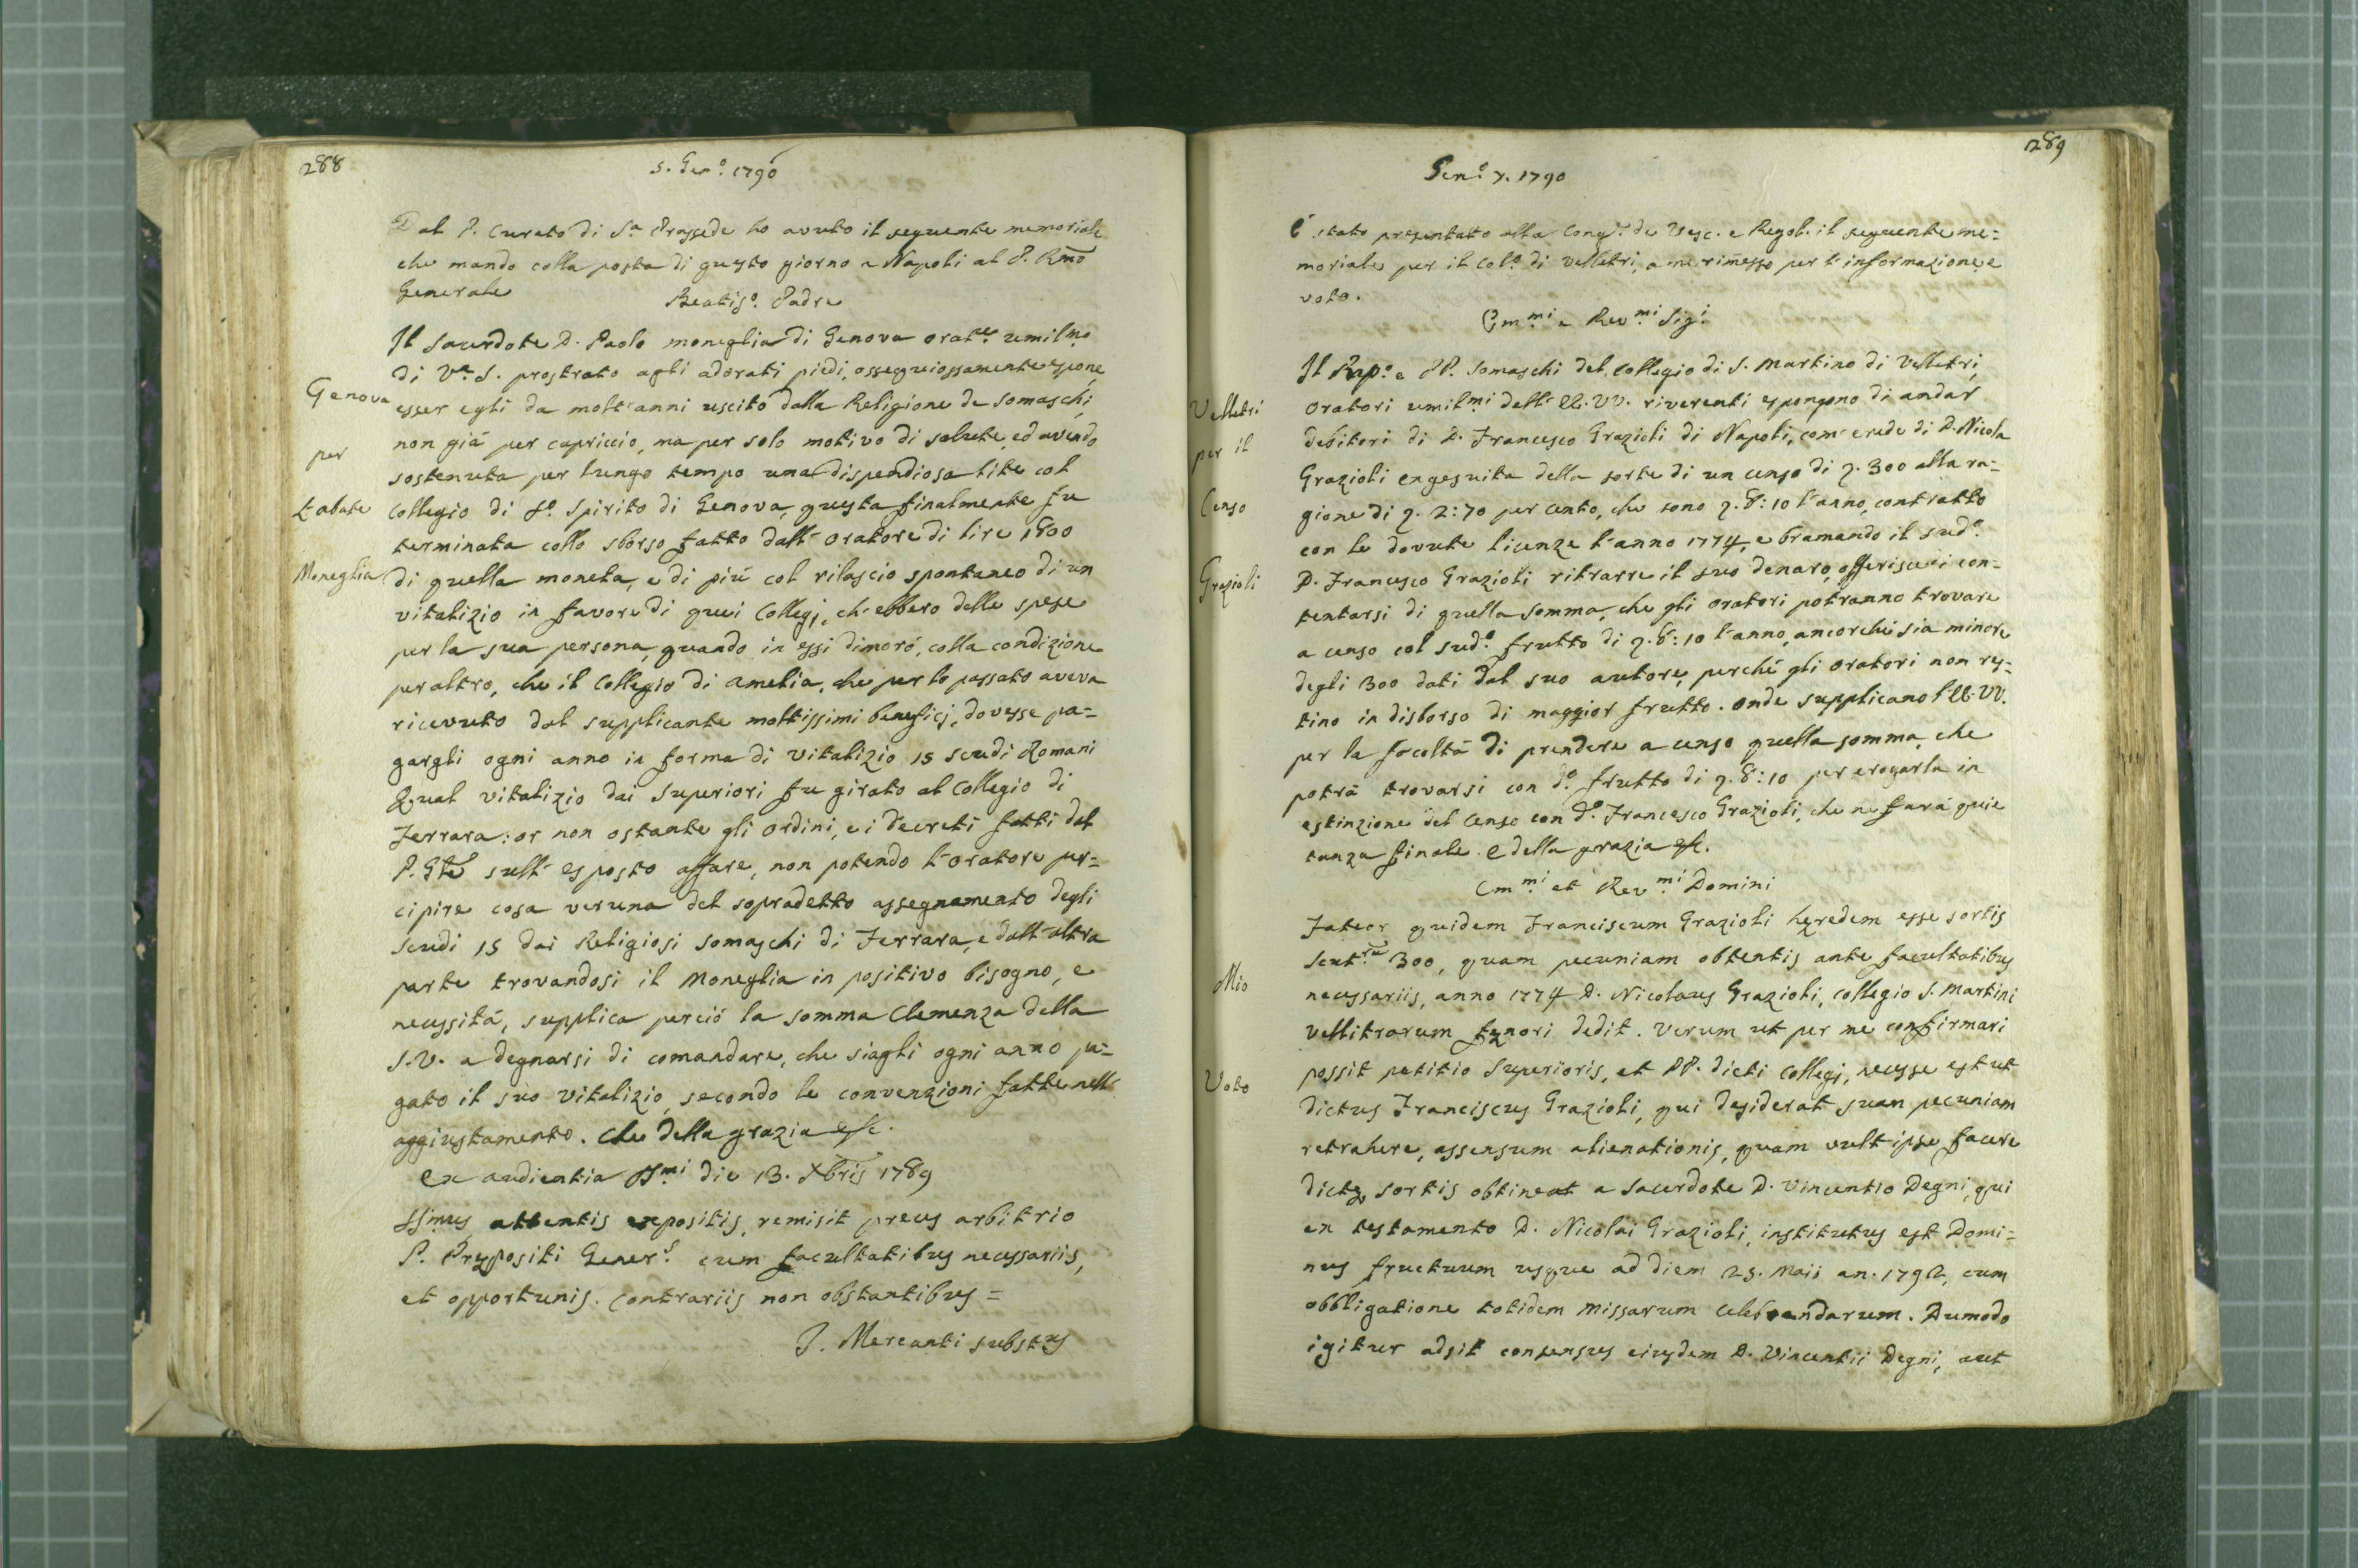 288
5. Gen.º 1790
Dal P. Curato di S.ª Prassede ho avuto il seguente memoriale
che mando colla posta di questo giorno a Napoli al P. Rmo
Generale
Beatis.º Padre
Il Sacerdote D. Paolo Moneglia di Genova orat.re umil.mo
di V.ª S. prostrato agli adorati piedi, ossequiossamente espone
Genova
esser egli da molt'anni uscito dalla Religione de Somaschi,
non già per capriccio, ma per solo motivo di salute, ed avendo
per
sostenuta per lungo tempo una dispendiosa lite col
l'abate
Collegio di S.º Spirito di Genova, questa finalmente fu
terminata collo sborso fatto dall'Oratore di lire 1800
Moneglia
di quella moneta, e di più col rilascio spontaneo di un
vitalizio in favore di quei Collegj, ch'ebbero delle spese
per la sua persona, quando in essi dimorò, colla condizione
peraltro, che il Collegio di Amelia, che per lo passato aveva
ricevuto dal supplicante moltissimi beneficj, dovesse pa=
gargli ogni anno in forma di vitalizio 15 scudi Romani
Qual vitalizio dai Superiori fu girato al Collegio di
Ferrara: or non ostante gli ordini, e i decreti fatti dal
P. Gle sull'esposto affare, non potendo l'oratore per=
cipire cosa veruna del sopradetto assegnamento degli
scudi 15 dai Religiosi Somaschi di Ferrara, e dall'altra
parte trovandosi il Moneglia in positivo bisogno, e
necessità, supplica perciò la somma Clemenza della
S.V. a degnarsi di comandare, che siagli ogni anno pa=
gato il suo vitalizio, secondo le convenzioni fatte nell'
aggiustamento. Che della grazia &c.
Ex audientia SS.mi die 13. Xbris 1789
SSmus attentis expositis, remisit preces arbitrio
P. Præpositi Gener.s cum facultatibus necessariis,
et opportunis. Contrariis non obstantibus =
J. Mercanti substus
289
Gen.º 7. 1790
È stato presentato alla Cong.e de Vesc. e Regol. il seguente me=
moriale per il Col.º di Velletri, a me rimesso per l'informazione, e
voto.
Em.mi e Rev.mi Sig.i
Il Prep.º e PP. Somaschi del Collegio di S. Martino di Velletri,
Velletri
Oratori umil.mi dell'EE.VV. riverenti espongono di andar
debitori di D. Francesco Grazioli di Napoli, com'erede di D. Nicola
per il
Grazioli exgesuita della sorte di un censo di ∇. 300 alla ra=
Censo
gione di ∇. 2:70 per cento, che sono ∇. 8:10 l'anno, contratto
con le dovute licenze l'anno 1774, e bramando il sud.º
Grazioli
D. Francesco Grazioli ritrarre il suo denaro, offerisce di con=
tentarsi di quella somma, che gli Oratori potranno trovare
a censo col sud.º frutto di ∇. 8:10 l'anno, ancorchè sia minore
degli 300 dati dal suo autore, perchè gli Oratori non res=
tino in disborso di maggior frutto. Onde supplicano l'EE.VV.
per la facoltà di prendere a censo quella somma, che
potrà trovarsi con d.º frutto di ∇. 8:10 per erogarla in
estinzione del Censo con d.º Francesco Grazioli, che ne farà quie
tanza finale. E della grazia &c.
Em.mi et Rev.mi Domini
Fateor quidem Franciscum Grazioli hæredem esse sortis
Scut.m 300, quam pecuniam obtentis ante facultatibus
Mio
necessariis, anno 1774 D. Nicolaus Grazioli, collegio S. Martini
Vellitrarum fænori dedit. Verum ut per me confirmari
possit petitio Superioris, et PP. dicti Collegj, necesse est ut
Voto
dictus Franciscus Grazioli, qui desiderat suam pecuniam
retrahere, assensum alienationis, quam vult ipse facere
dictæ sortis obtineat a Sacerdote D. Vincentio Degni, qui
ex testamento D. Nicolai Grazioli, institutus est Domi=
nus fructuum usque ad diem 25. Maii an. 1792, cum
obbligatione totidem Missarum celebrandarum. Dumodo
igitur adsit consensus eiusdem D. Vincentii Degni, aut